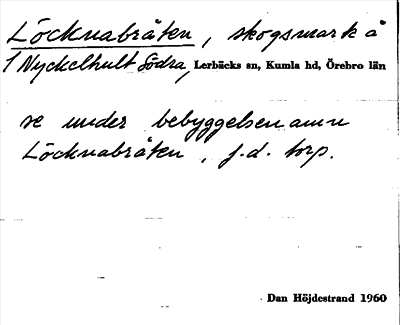 Löcknabråten, skogsmark å
1 Nyckelhult Södra, Lerbäcks sn, Kumla hd, Örebro län
se under bebyggelsenamn
Löcknabråten, f.d. torp.
Dan Höjdestrand 1960